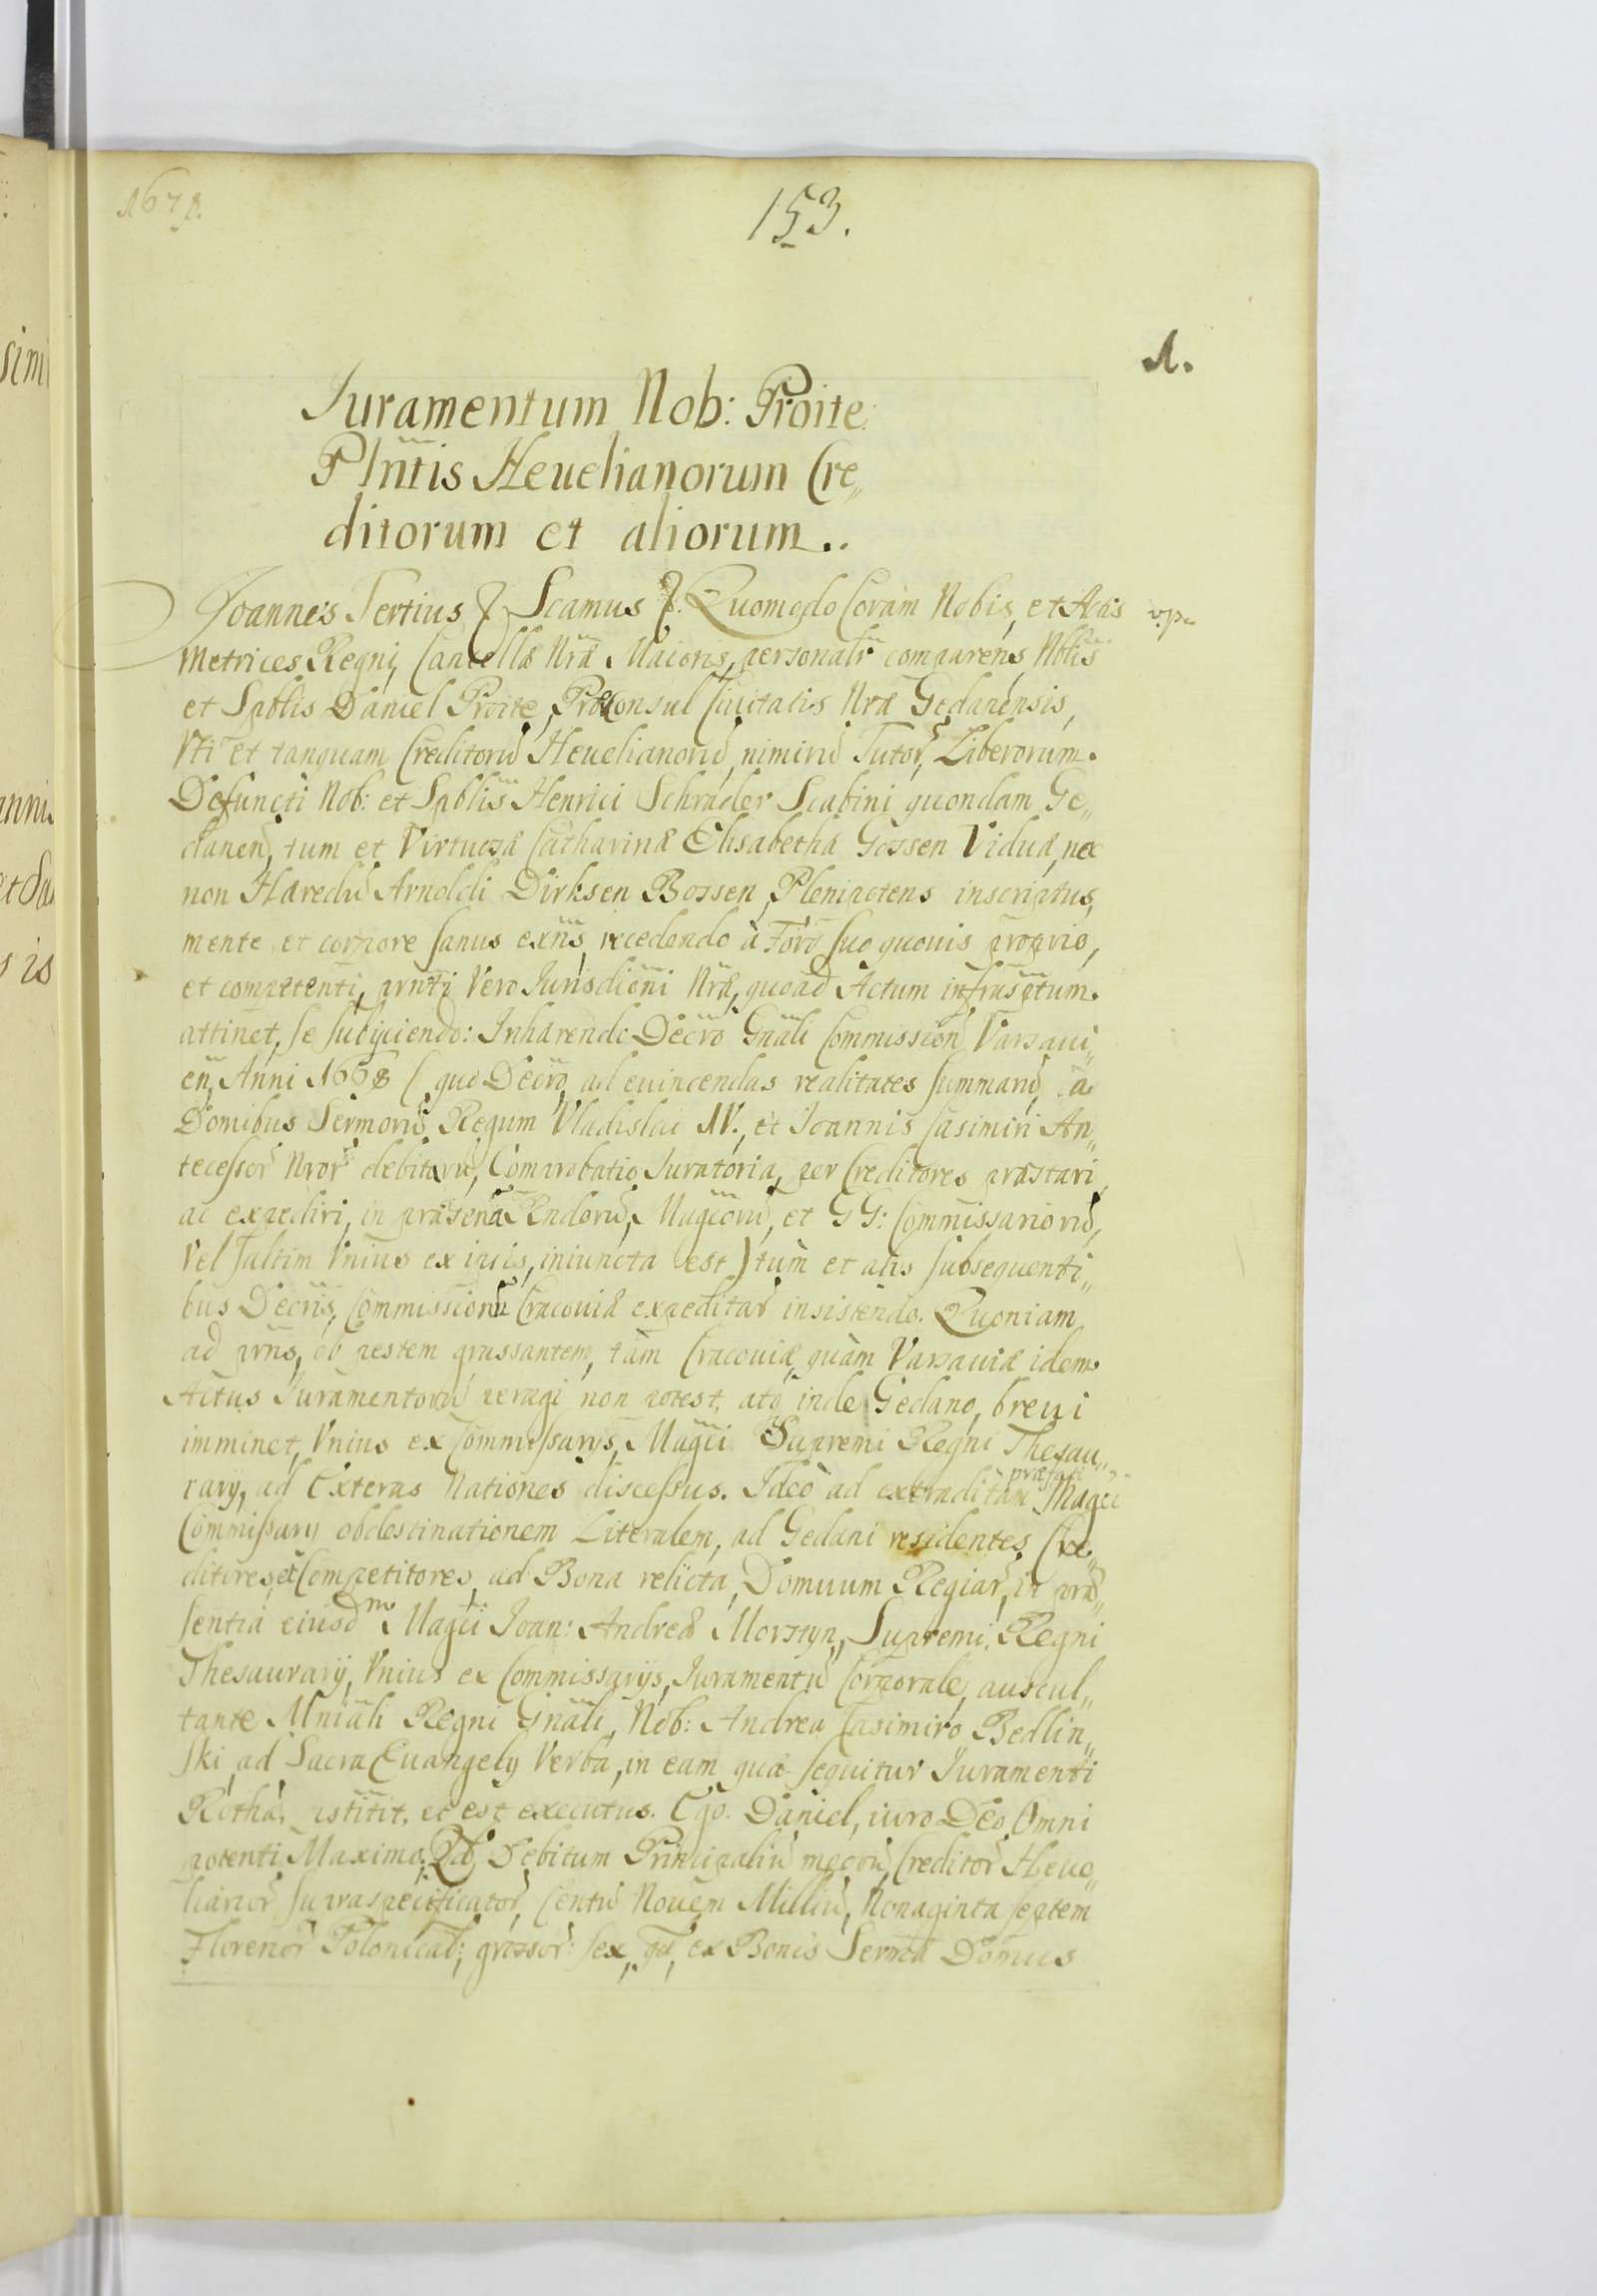 1678.
153.
1.
Juramentum Nob: Proite
Plntis Heuelianorum Cre„
ditorum et aliorum..
Joannes Tertius & Scamus &. Quomodo Coram Nobis, et Actis
Metrices Regni, Cancellæ Nræ Maioris, personalr comparens, Nblis
et Spblis Daniel Proite, Proconsul Ciuitatis Nræ Gedanensis,
Vti et tanquam Creditorũ Heuelianorũ, nimirũ Tutor, Liberorum
Defuncti Nob: et Spblis Henrici Schrader Scabini quondam Ge„
danen, tum et Virtuosæ Catharinæ Elisabethæ Gossen Viduæ, nec
non Hæredũ Arnoldi Dirksen Bossen, Plenipotens inscriptus,
mente et corpore sanus exns, recedendo à Foro suo quouis proprio,
et competenti, prnti Vero Jurisdicni Nræ, quoad Actum infrasptum
attinet, se subijciendo: Inhærendo Decro Gnali Commission Varsaui„
en, Anni 1668 (quo Decro, ad euincendas realitates summarũ, a
Domibus Sermorũ Regum Vladislai IV., et Joannis Casimiri An„
tecessor Nror debitarũ, Comprobatio Juratoria, per Creditores præstari,
ac expediri, in præsena Rndorũ, Magcorũ, et GG: Commissariorũ,
Vel saltim Vnius ex ipsis, iniuncta est) tùm et alis subsequenti„
bus Decris, Commissionũ Cracouiæ expeditar insistendo. Quoniam
ad prns, ob pestem grassantem, tàm Cracouiæ, quàm Varsauiæ idem
Actus Juramentorũ peragi non potest, atq inde Gedano, breui
imminet, Vnius ex Commissarijs, Magci Supremi Regni Thesau„
rarij, ad Exteras Nationes discessus. Ideò ad extraditam præfati Magci
Commissarij obdestinationem Literalem, ad Gedani residentes Cre„
ditores, et Competitores, ad Bona relicta, Domuum Regiar, in præ„
sentia eiusdm Magci Joan: Andreæ Morstyn, Supremi Regni
Thesaurarij, Vnius ex Commissarijs, Juramentũ Corporale, auscul„
tante Mniali Regni Gnali, Nob: Andrea Casimiro Bedlin„
ski, ad Sacra Euangelij Verba, in eam quæ sequitur Juramenti
Rotha, pstitit, et est executus. Ego Daniel, iuro Deo Omni
potenti Maximo, Qd Debitum Principaliũ meorũ, Creditor Heue„
lianor supraspecificator, Centũ Nouem Milliũ, Nonaginta septem
Florenor Polonical; grossor: sex, qd, ex Bonis Sermæ Domus